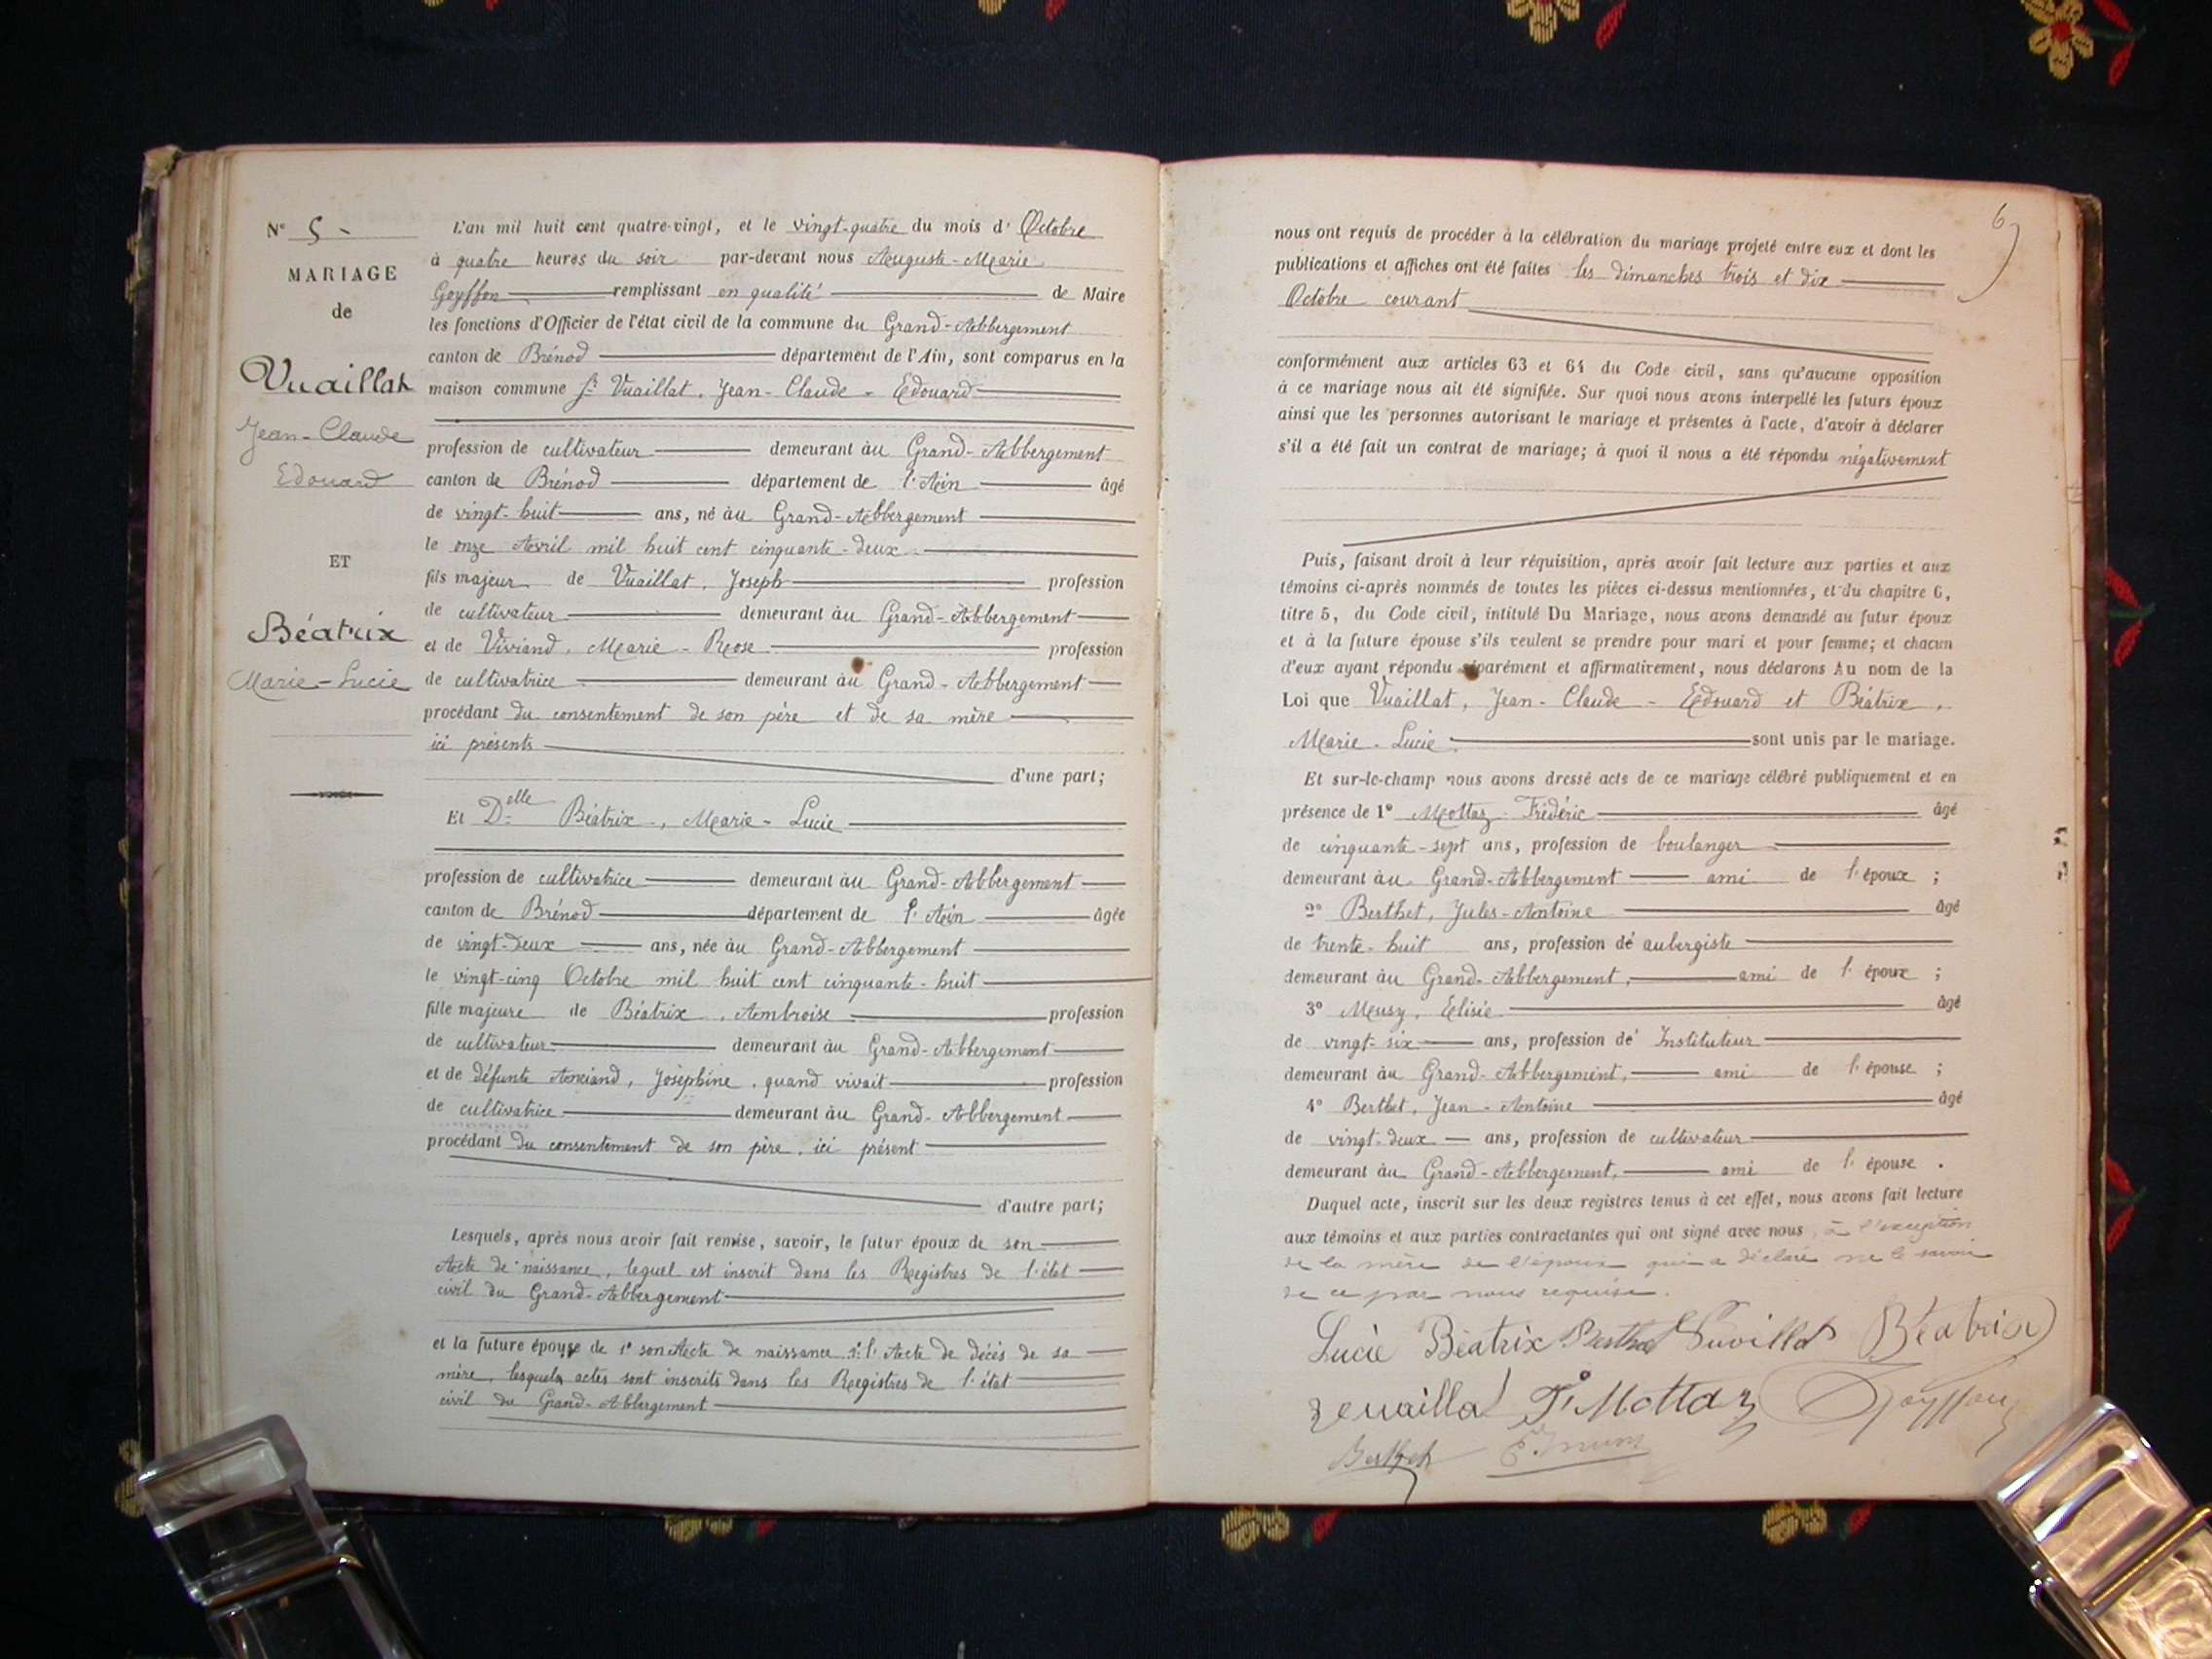 N° 5 -
MARIAGE
de
Vuaillat
Jean-Claude
Edouard
ET
Béatrix
Marie-Lucie
L'an mil huit cent quatre-vingt, et le vingt-quatre du mois d'Octobre
à quatre heures du soir par-devant nous Auguste-Marie
Goyffon remplissant en qualité de Maire
les fonctions d'Officier de l'état civil de la commune du Grand-Abbergement
canton de Brénod département de l'Ain, sont comparus en la
maison commune Sr Vuaillat, Jean-Claude-Edouard
profession de cultivateur demeurant au Grand-Abbergement
canton de Brénod département de l'Ain âgé
de vingt-huit ans, né au Grand-Abbergement
le onze Avril mil huit cent cinquante-deux
fils majeur de Vuaillat, Joseph profession
de cultivateur demeurant au Grand-Abbergement
et de Viviand, Marie-Rose profession
de cultivatrice demeurant au Grand-Abbergement
procédant du consentement de son père et de sa mère
ici présents
d'une part;
Et Delle Béatrix, Marie-Lucie
profession de cultivatrice demeurant au Grand-Abbergement
canton de Brénod département de l'Ain âgée
de vingt-deux ans, née au Grand-Abbergement
le vingt-cinq Octobre mil huit cent cinquante-huit
fille majeure de Béatrix, Ambroise profession
de cultivateur demeurant au Grand-Abbergement
et de défunte Anciand, Joséphine, quand vivait profession
de cultivatrice demeurant au Grand-Abbergement
procédant du consentement de son père, ici présent
d'autre part;
Lesquels, après nous avoir fait remise, savoir, le futur époux de son
Acte de naissance, lequel est inscrit dans les Registres de l'état
civil du Grand-Abbergement
et la future épouse de 1° son Acte de naissance 2° l'Acte de décès de sa
mère, lesquels actes sont inscrits dans les Registres de l'état
civil du Grand-Abbergement
6
nous ont requis de procéder à la célébration du mariage projeté entre eux et dont les
publications et affiches ont été faites les dimanches trois et dix
Octobre courant
conformément aux articles 63 et 64 du Code civil, sans qu'aucune opposition
à ce mariage nous ait été signifiée. Sur quoi nous avons interpellé les futurs époux
ainsi que les personnes autorisant le mariage et présentes à l'acte, d'avoir à déclarer
s'il a été fait un contrat de mariage; à quoi il nous a été répondu négativement
Puis, faisant droit à leur réquisition, après avoir fait lecture aux parties et aux
témoins ci-après nommés de toutes les pièces ci-dessus mentionnées, et du chapitre 6,
titre 5, du Code civil, intitulé Du Mariage, nous avons demandé au futur époux
et à la future épouse s'ils veulent se prendre pour mari et pour femme; et chacun
d'eux ayant répondu séparément et affirmativement, nous déclarons Au nom de la
Loi que Vuaillat, Jean-Claude-Edouard et Béatrix,
Marie-Lucie sont unis par le mariage.
Et sur-le-champ nous avons dressé acte de ce mariage célébré publiquement et en
présence de 1° Mottaz Frédéric âgé
de cinquante-sept ans, profession de boulanger
demeurant au Grand-Abbergement ami de l'époux ;
2° Berthet, Jules-Antoine âgé
de trente-huit ans, profession de aubergiste
demeurant au Grand-Abbergement, ami de l'époux ;
3° Meusy, Elisée âgé
de vingt-six ans, profession de Instituteur
demeurant au Grand-Abbergement, ami de l'épouse ;
4° Berthet, Jean-Antoine âgé
de vingt-deux ans, profession de cultivateur
demeurant au Grand-Abbergement, ami de l'épouse .
Duquel acte, inscrit sur les deux registres tenus à cet effet, nous avons fait lecture
aux témoins et aux parties contractantes qui ont signé avec nous, à l'exception
de la mère de l'époux qui a déclaré ne le savoir
de ce par nous requise.
Lucie Béatrix Berthet Vuaillat Béatrix
Vuaillat Fc Mottaz Goyffon
Berthet